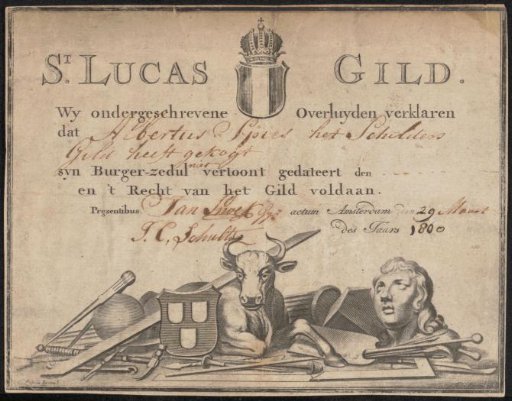 ST. LUCAS GILD.
Wy ondergeschrevene Overluyden verklaren
dat Albertus Spies het Schilders
Gild heeft gekogt
syn Burger-zedul niet vertoont gedateert den
en 't Recht van het Gild voldaan.
Præsentibus Van actum Amsterdam den 29 Maart
J. C. Schultz des Jaars 1800